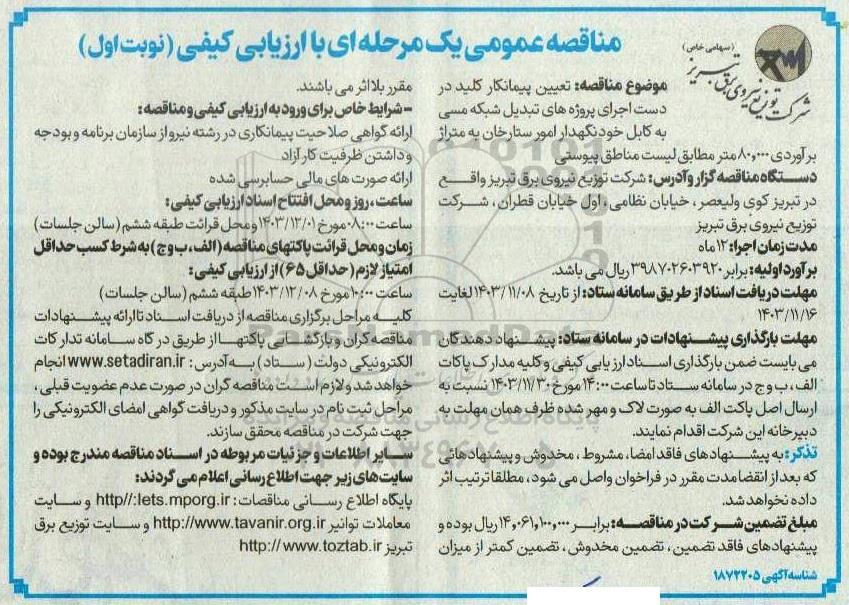 مناقصه عمومی یک مرحله ای با ارزیابی کیفی (نوبت اول)
(سهامی خاص)
شرکت توزیع نیروی برق تبریز
موضوع مناقصه: تعیین پیمانکار کلید در
دست اجرای پروژه های تبدیل شبکه مسی
به کابل خودنگهدار امور ستارخان به متراژ
برآوردی ۸۰,۰۰۰ متر مطابق لیست مناطق پیوستی
دستگاه مناقصه گزار و آدرس: شرکت توزیع نیروی برق تبریز واقع
در تبریز کوی ولیعصر، خیابان نظامی، اول خیابان قطران، شرکت
توزیع نیروی برق تبریز
مدت زمان اجرا: ۱۲ ماه
برآورد اولیه: برابر ۳۹۸۷۰۲۶۰۳۹۲۰ ریال می باشد.
مهلت دریافت اسناد از طریق سامانه ستاد: از تاریخ ۱۴۰۳/۱۱/۰۸ لغایت
۱۴۰۳/۱۱/۱۶
مهلت بارگذاری پیشنهادات در سامانه ستاد: پیشنهاد دهندگان
می بایست ضمن بارگذاری اسناد ارزیابی کیفی و کلیه مدارک پاکات
الف، ب و ج در سامانه ستاد تا ساعت ۱۴:۰۰ مورخ ۱۴۰۳/۱۱/۳۰ نسبت به
ارسال اصل پاکت الف به صورت لاک و مهر شده ظرف همان مهلت به
دبیرخانه این شرکت اقدام نمایند.
تذکر: به پیشنهادهای فاقد امضا، مشروط، مخدوش و پیشنهادهائی
که بعد از انقضا مدت مقرر در فراخوان واصل می شود، مطلقا ترتیب اثر
داده نخواهد شد.
مبلغ تضمین شرکت در مناقصه: برابر ۱۴,۰۶۱,۱۰۰,۰۰۰ ریال بوده و
پیشنهادهای فاقد تضمین، تضمین مخدوش، تضمین کمتر از میزان
شناسه آگهی ۱۸۷۲۲۰۵
مقرر بلا اثر می باشند.
- شرایط خاص برای ورود به ارزیابی کیفی و مناقصه:
ارائه گواهی صلاحیت پیمانکاری در رشته نیرو از سازمان برنامه و بودجه
و داشتن ظرفیت کار آزاد
ارائه صورت های مالی حسابرسی شده
ساعت، روز و محل افتتاح اسناد ارزیابی کیفی:
ساعت ۰۸:۰۰ مورخ ۱۴۰۳/۱۲/۰۱ و محل قرائت طبقه ششم (سالن جلسات)
زمان و محل قرائت پاکتهای مناقصه (الف، ب و ج) به شرط کسب حداقل
امتیاز لازم (حداقل ۶۵) از ارزیابی کیفی:
ساعت ۱۰:۰۰ مورخ ۱۴۰۳/۱۲/۰۸ طبقه ششم (سالن جلسات)
کلیه مراحل برگزاری مناقصه از دریافت اسناد تا ارائه پیشنهادات
مناقصه گران و بازگشایی پاکتها از طریق درگاه سامانه تدارکات
الکترونیکی دولت (ستاد) به آدرس: www.setadiran.ir انجام
خواهد شد و لازم است مناقصه گران در صورت عدم عضویت قبلی،
مراحل ثبت نام در سایت مذکور و دریافت گواهی امضای الکترونیکی را
جهت شرکت در مناقصه محقق سازند.
سایر اطلاعات و جزئیات مربوطه در اسناد مناقصه مندرج بوده و
سایت های زیر جهت اطلاع رسانی اعلام می گردند:
پایگاه اطلاع رسانی مناقصات: http//:Iets.mporg.ir و سایت
معاملات توانیر http://www.tavanir.org.ir و سایت توزیع برق
تبریز http:// www.toztab.ir